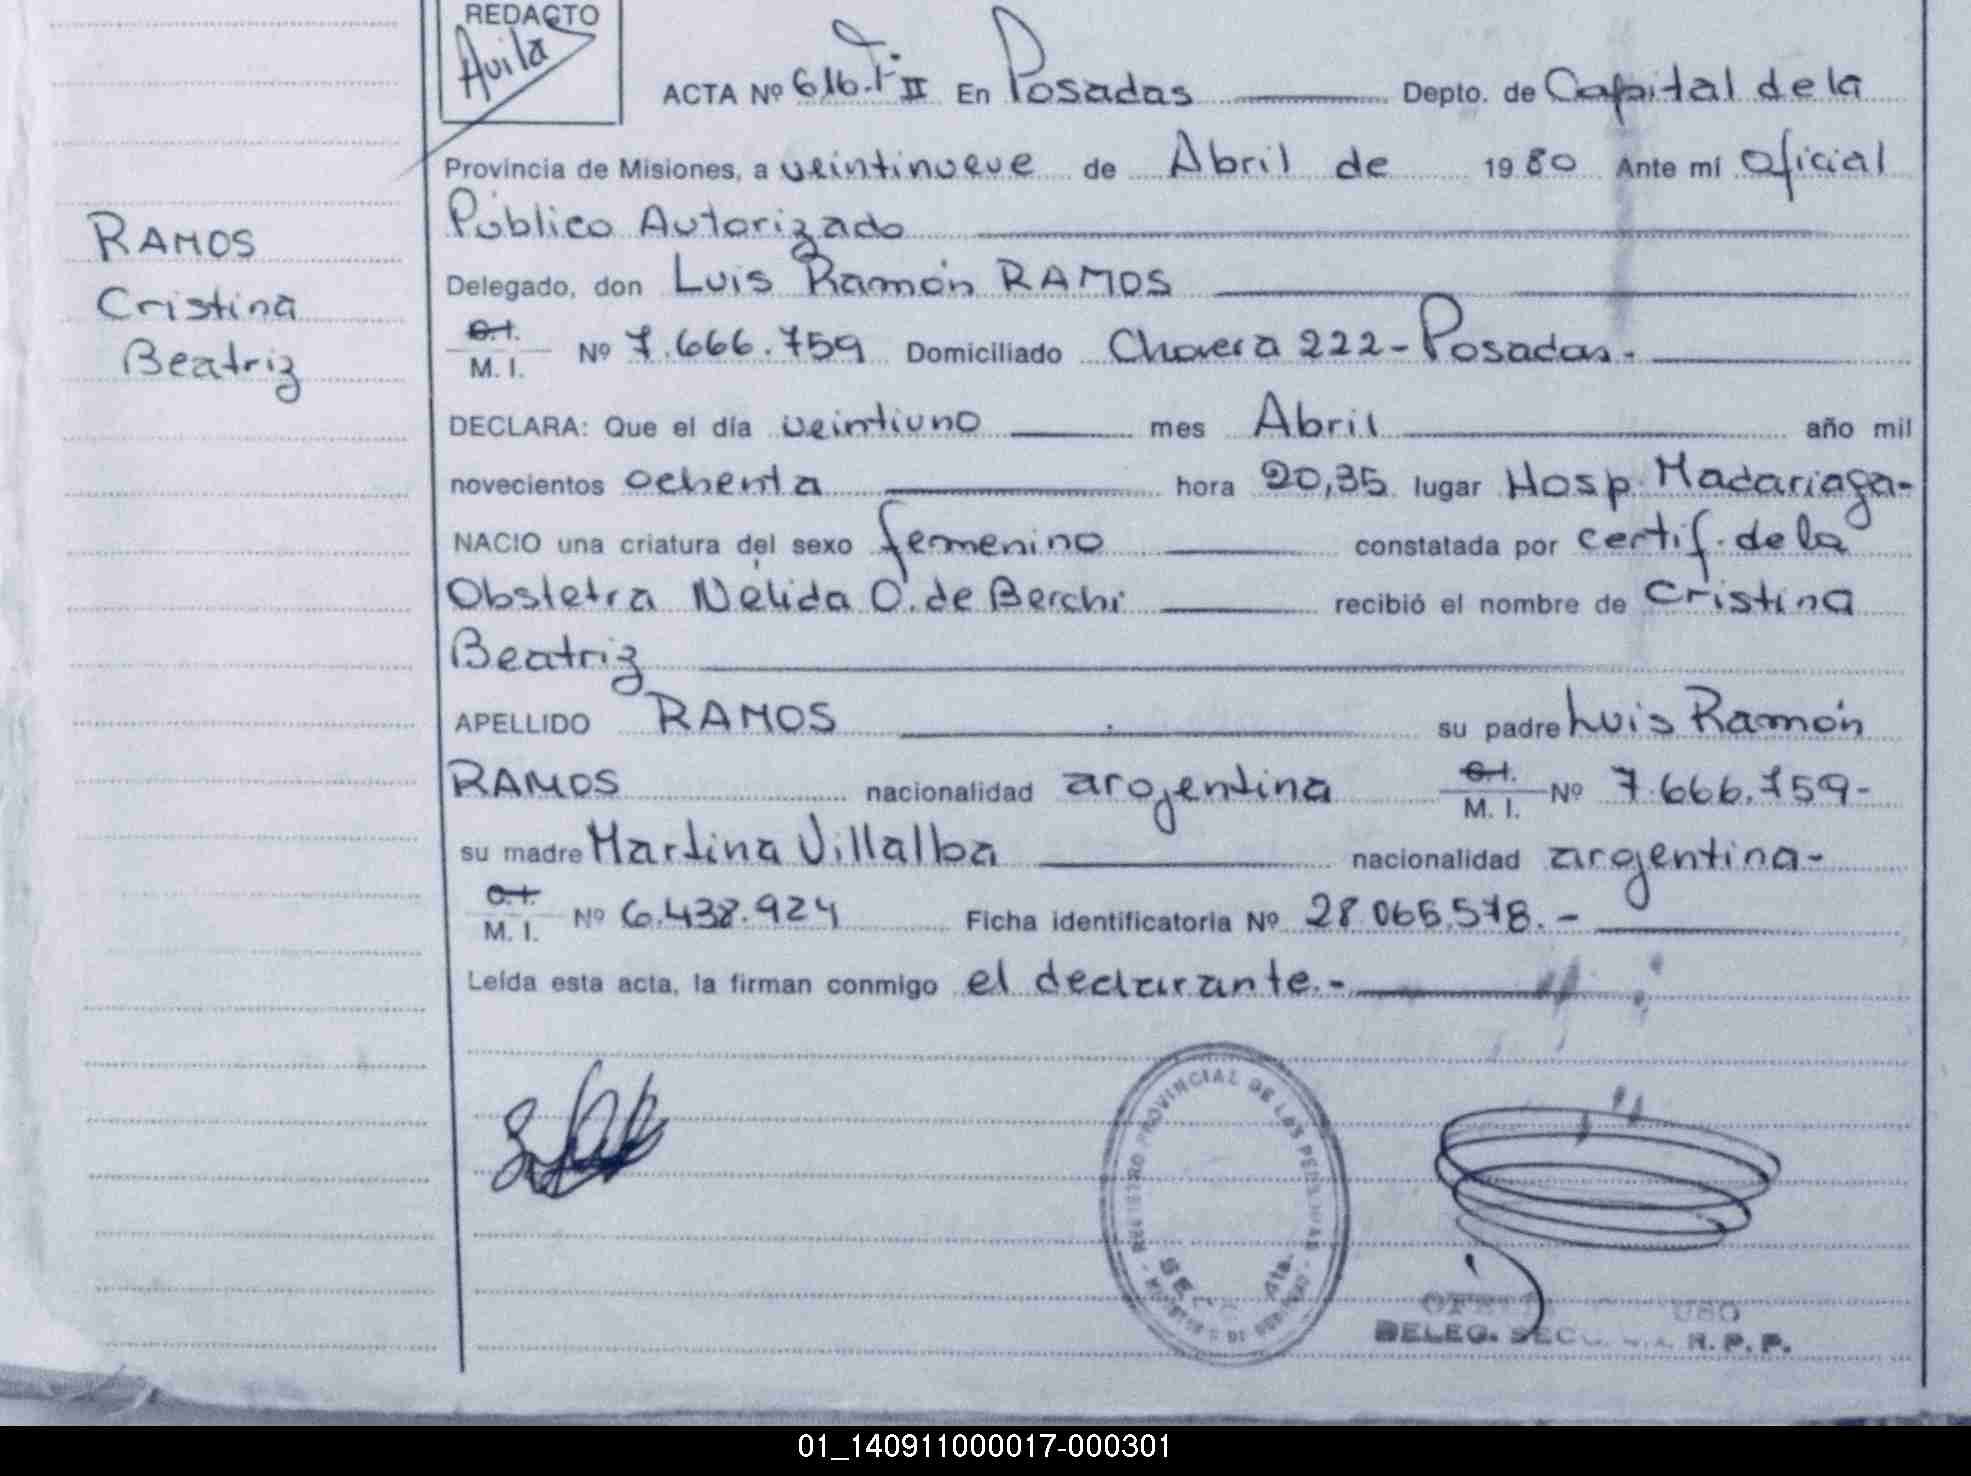 REDACTO
Avila
ACTA Nº 616. Tº II En Posadas Depto. de Capital de la
Provincia de Misiones, a veintinueve de Abril de 1980 Ante mí Oficial
Público Autorizado
Delegado, don Luis Ramón RAMOS
C.I.
M. I. Nº 7.666.759 Domiciliado Chavera 222 - Posadas.
DECLARA: Que el día veintiuno mes Abril año mil
novecientos ochenta hora 20,35 lugar Hosp. Madariaga-
NACIO una criatura del sexo femenino constatada por certif. de la
Obstetra Nélida O. de Berchi recibió el nombre de Cristina
Beatriz
APELLIDO RAMOS su padre Luis Ramón
RAMOS nacionalidad argentina C.I.
M. I. Nº 7.666.759-
su madre Martina Villalba nacionalidad argentina-
C.I.
M. I. Nº 6.438.924 Ficha identificatoria Nº 28.065.578.-
Leída esta acta, la firman conmigo el declarante.-
RAMOS
Cristina
Beatriz
REGISTRO PROVINCIAL DE LAS PERSONAS
SECC 4ta.
DELEG. SECC. R. P. P.
01_140911000017-000301